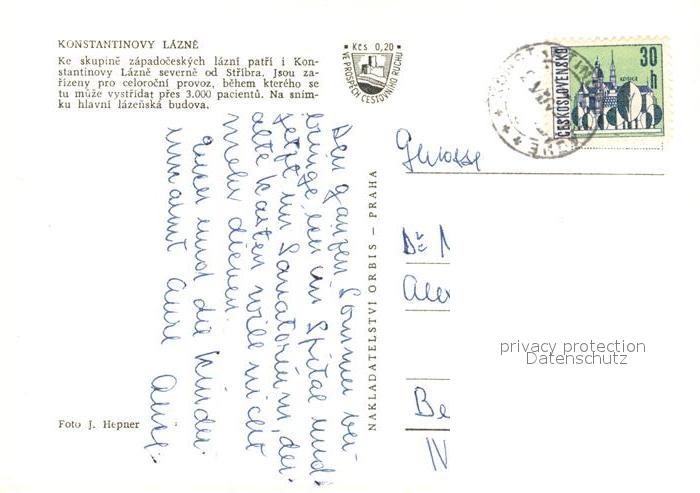 KONSTANTINOVY LÁZNĚ
Ke skupině západočeských lázní patří i Kon-
stantinovy Lázně severně od Stříbra. Jsou za-
řízeny pro celoroční provoz, během kterého se
tu může vystřídat přes 3.000 pacientů. Na sním-
ku hlavní lázeňská budova.
Kčs 0,20
VE PROSPĚCH CESTOVNÍHO RUCHU
ČESKOSLOVENSKO
30
h
KOŠICE
Den ganzen Sommer ver-
bringe ich im Spital und
jetzt im Sanatorium, der
alte Kasten will nicht
mehr dienen.
Euch und die Kinder
umarmt Eure
NAKLADATELSTVÍ ORBIS – PRAHA
Genosse
Be
privacy protection
Datenschutz
Foto J. Hepner